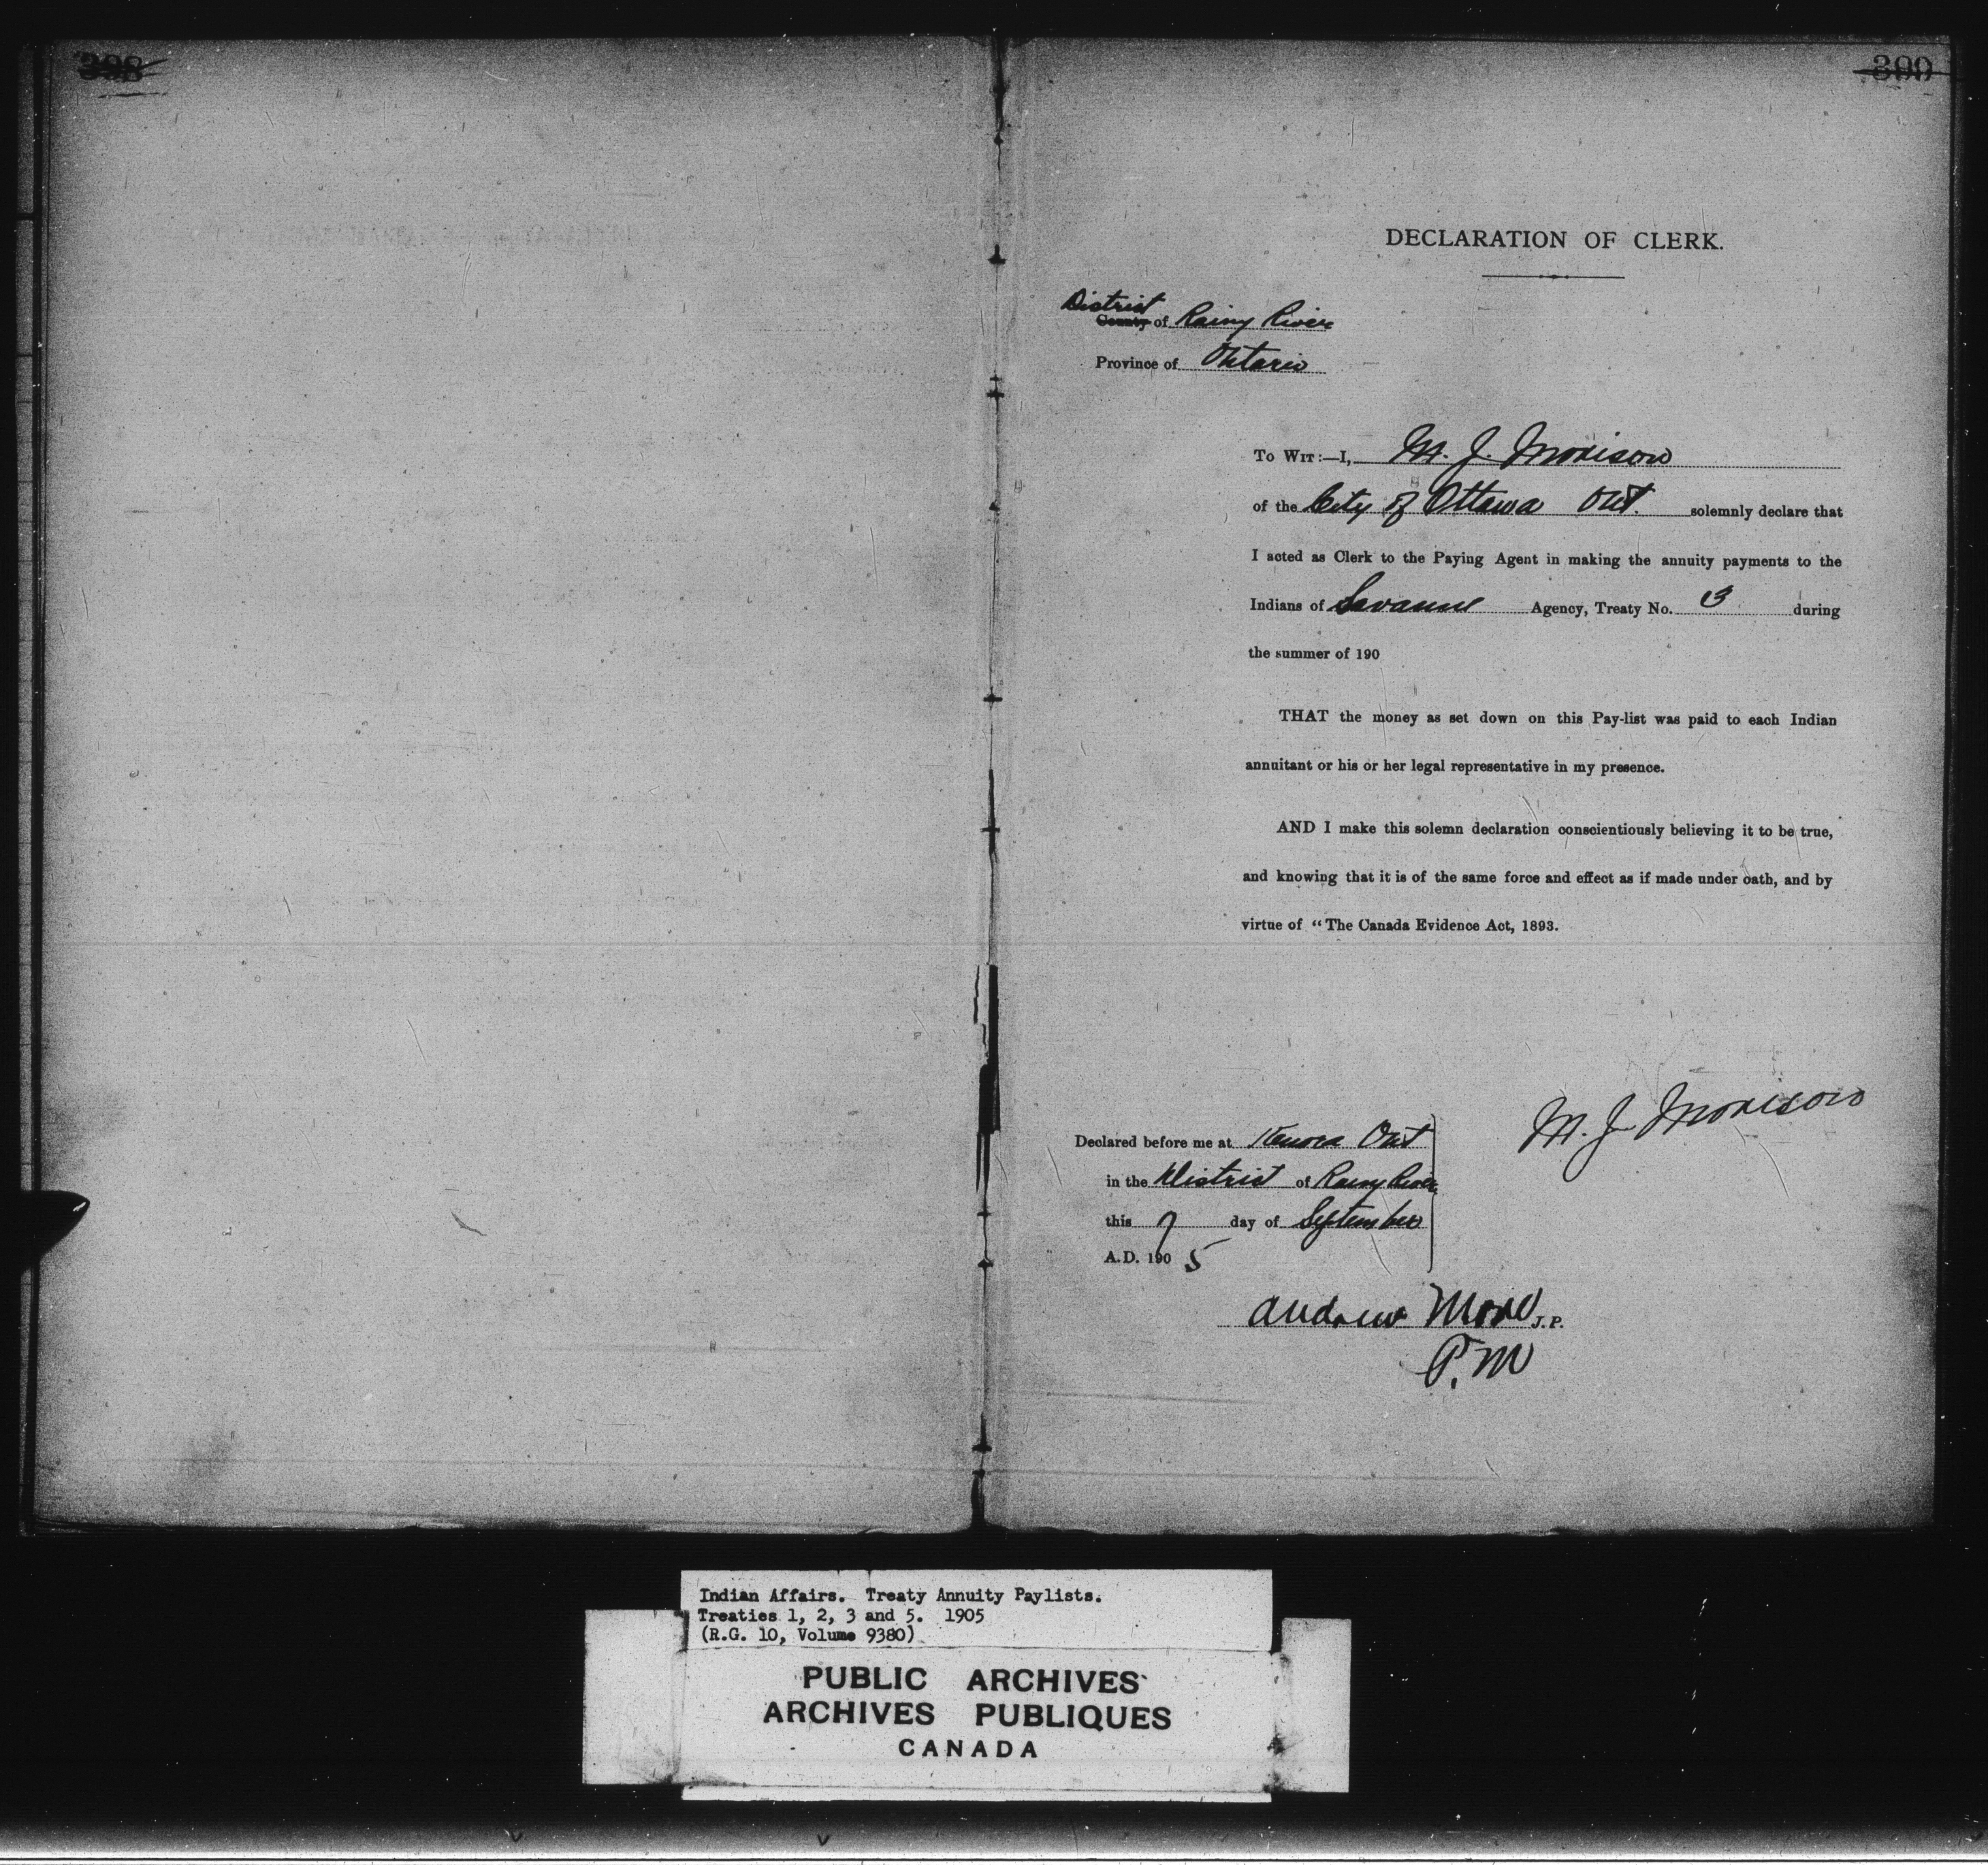 398
399
DECLARATION OF CLERK.
District
County of Rainy River
Province of Ontario
To Wit:—I, M. J. Morison
of the City of Ottawa Ont. solemnly declare that
I acted as Clerk to the Paying Agent in making the annuity payments to the
Indians of Savanne Agency, Treaty No. 3 during
the summer of 190
THAT the money as set down on this Pay-list was paid to each Indian
annuitant or his or her legal representative in my presence.
AND I make this solemn declaration conscientiously believing it to be true,
and knowing that it is of the same force and effect as if made under oath, and by
virtue of "The Canada Evidence Act, 1893.
M. J. Morison
Declared before me at Kenora Ont
in the District of Rainy River
this 7 day of September
A.D. 190 5
Andrew J.P.
P. M
Indian Affairs. Treaty Annuity Paylists.
Treaties 1, 2, 3 and 5. 1905
(R.G. 10, Volume 9380)
PUBLIC ARCHIVES
ARCHIVES PUBLIQUES
CANADA